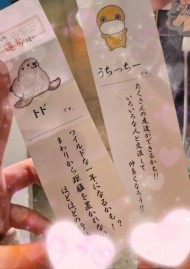 うちっちー
です。
たくさんの友達ができるかも!?
いろいろな人と交流して
仲良くなろう!!
トド
です。
ワイルドな一年になるかも!?
まわりから距離を置かれな
ほどほどの